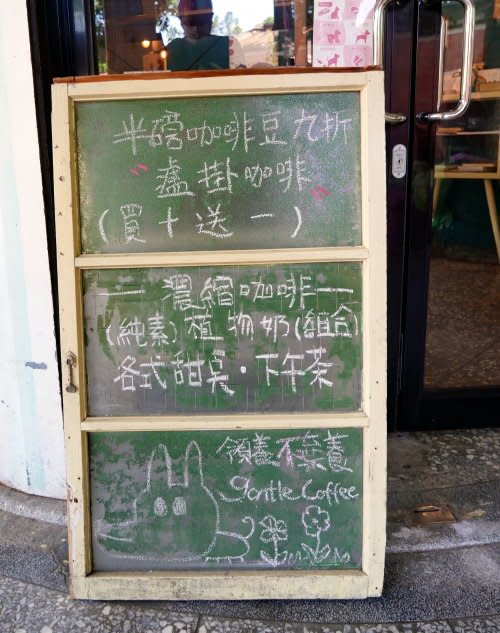 半磅咖啡豆九折
"盧掛咖啡"
(買十送一)
一濃縮咖啡一
(純素)植物奶(組合)
各式甜点·下午茶
領養不棄養
gentle Coffee